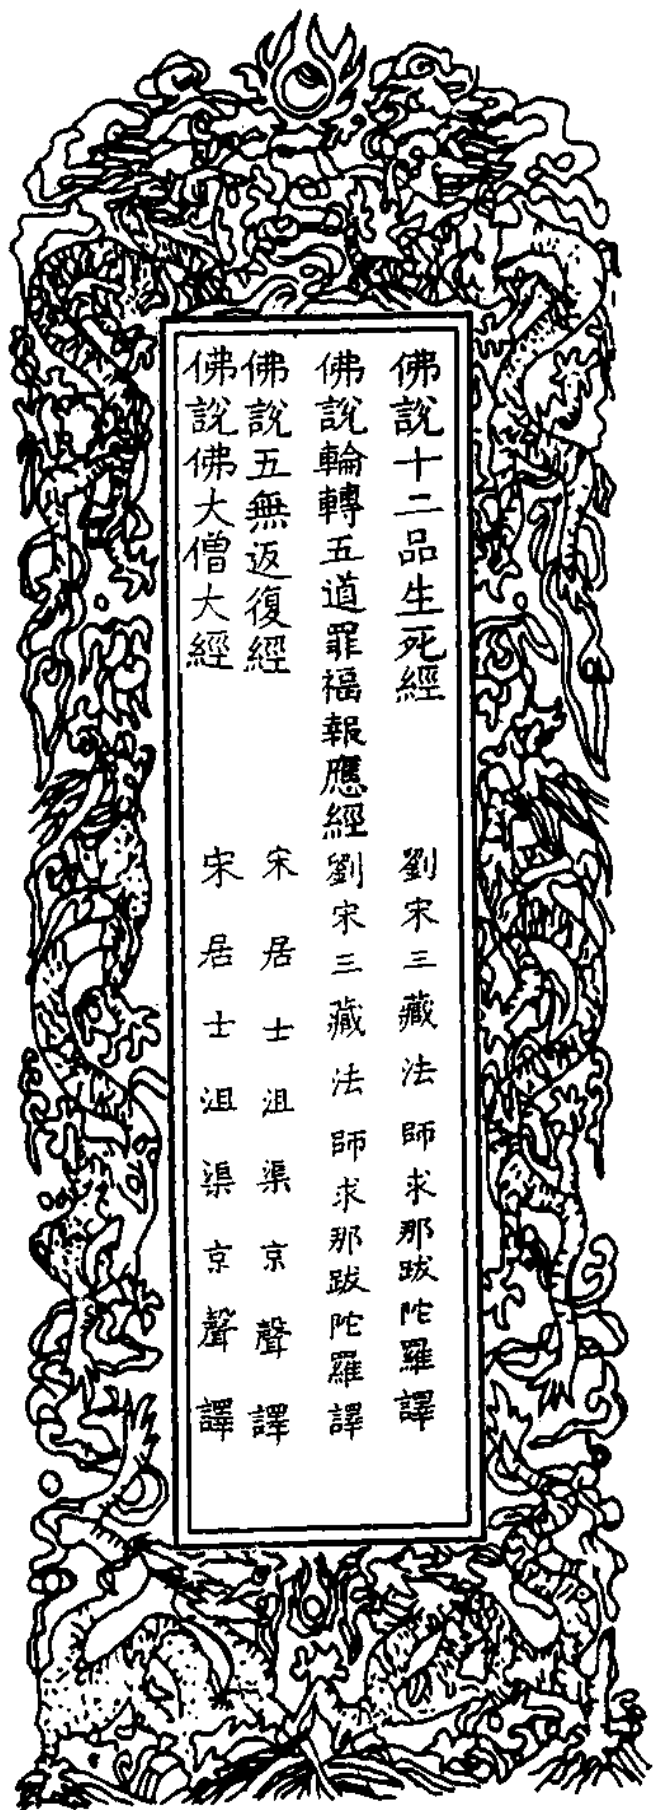 佛說十二品生死經 劉宋三藏法師求那跋陀羅譯
佛說輪轉五道罪福報應經 劉宋三藏法師求那跋陀羅譯
佛說五無返復經 宋居士沮渠京聲譯
佛說佛大僧大經 宋居士沮渠京聲譯